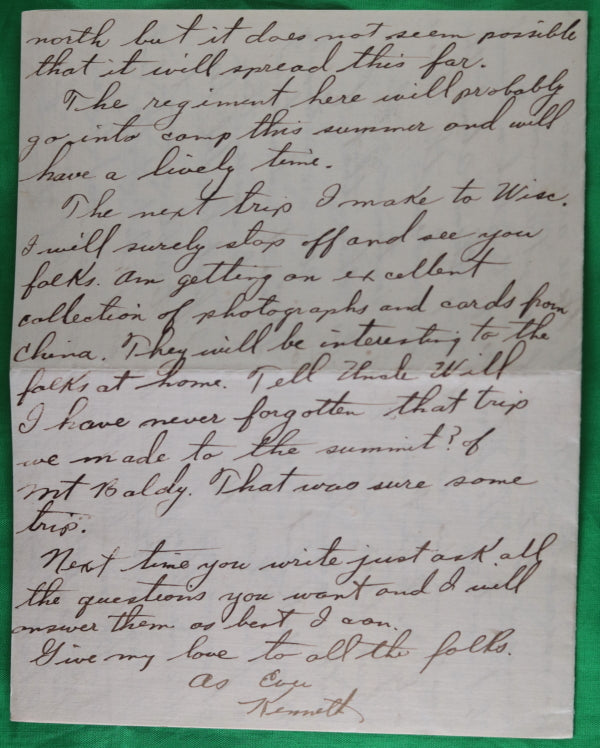 north but it does not seem possible
that it will spread this far.
The regiment here will probably
go into camp this summer and will
have a lively time.
The next trip I make to Wisc.
I will surely stop off and see you
folks. Am getting an excellent
collection of photographs and cards from
China. They will be interesting to the
folks at home. Tell Uncle Will
I have never forgotten that trip
we made to the summit? of
Mt Baldy. That was sure some
trip.
Next time you write just ask all
the questions you want and I will
answer them as best I can.
Give my love to all the folks.
As Ever
Kenneth